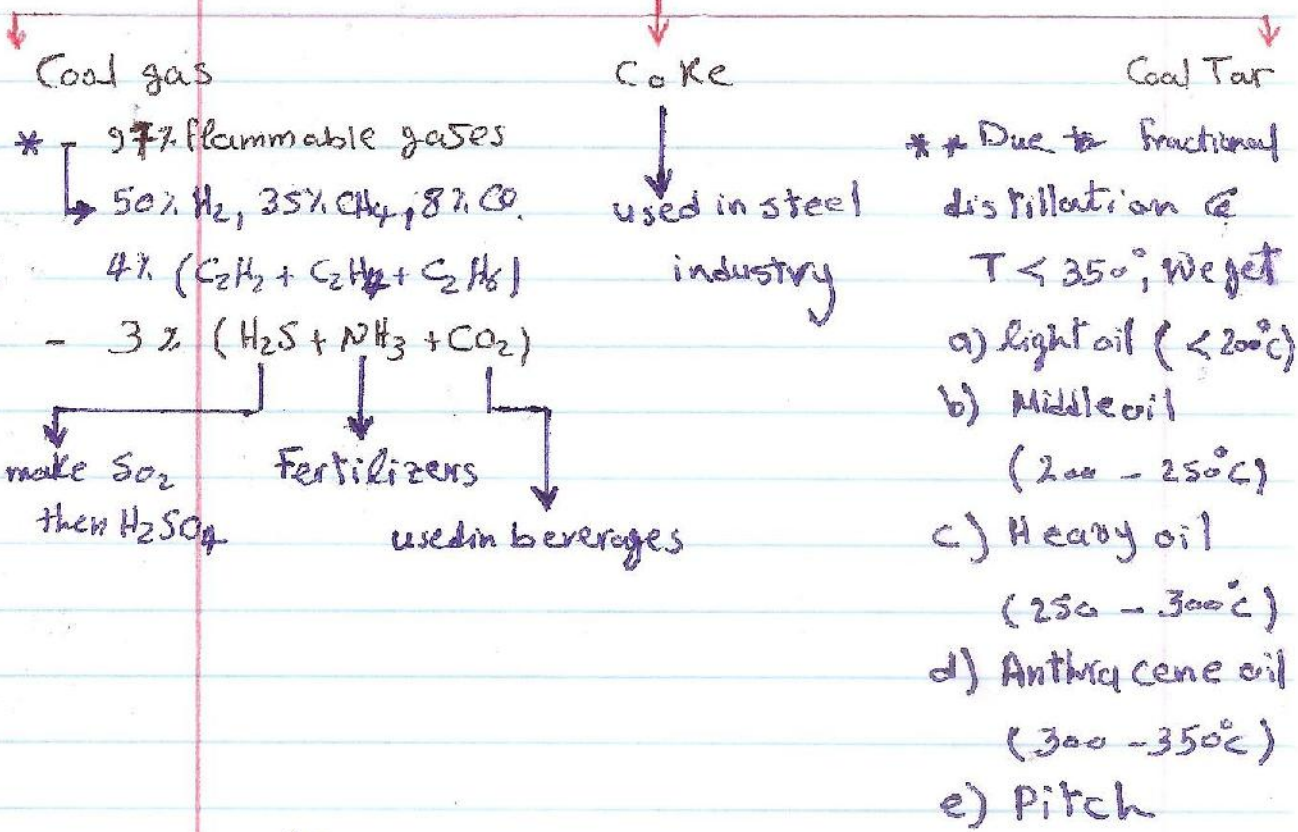 Coal gas
* - 97% flammable gases
50% H₂, 35% CH₄, 8% CO.
4% (C₂H₂ + C₂H₄ + C₂H₆)
- 3% (H₂S + NH₃ + CO₂)
make SO₂
then H₂SO₄
Fertilizers
used in beverages
Coke
used in steel
industry
Coal Tar
** Due to fractional
distillation @
T < 350°, we get
a) light oil (< 200°C)
b) Middle oil
(200 - 250°C)
c) Heavy oil
(250 - 300°C)
d) Anthracene oil
(300 - 350°C)
e) Pitch